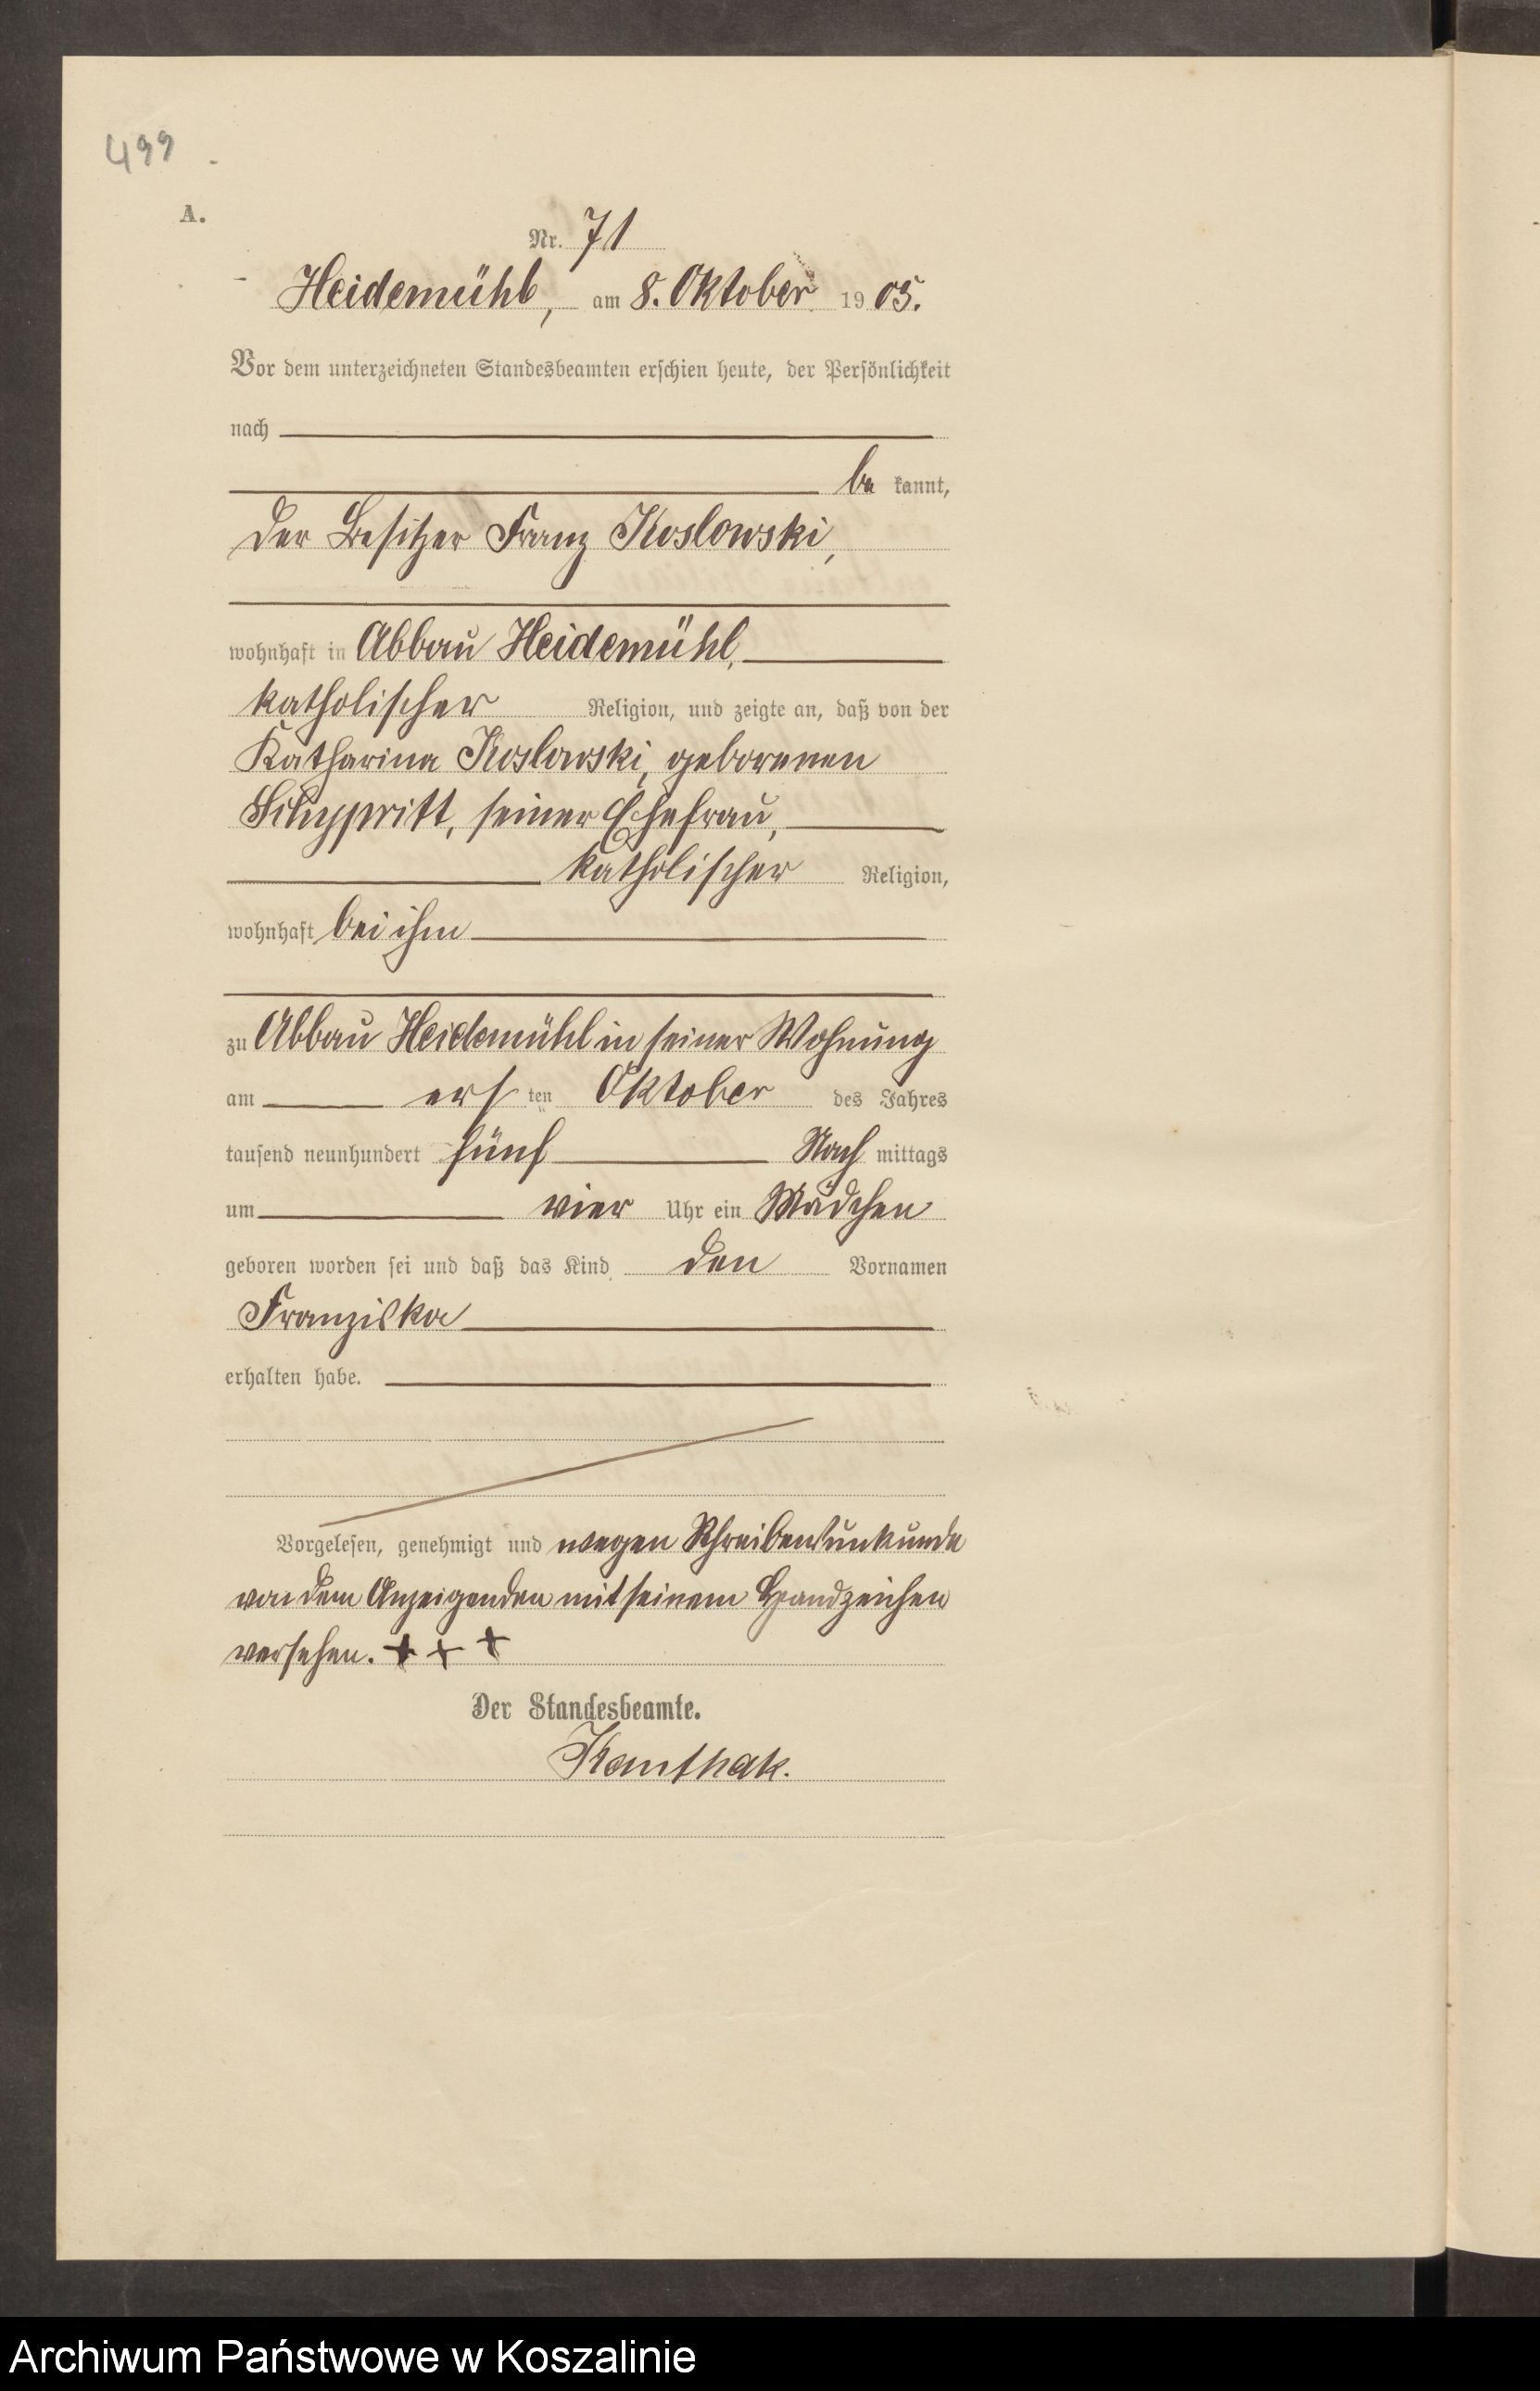 499
A.
Nr. 71
Heidemühl, am 8. Oktober 1905.
Vor dem unterzeichneten Standesbeamten erschien heute, der Persönlichkeit
nach
be kannt,
der Besitzer Franz Koslowski,
wohnhaft in Abbau Heidemühl,
katholischer Religion, und zeigte an, daß von der
Katharina Koslowski, geborenen
seiner Ehefrau,
katholischer Religion,
wohnhaft bei ihm
zu Abbau Heidemühl in seiner Wohnung
am ersten Oktober des Jahres
tausend neunhundert fünf Nachmittags
um vier Uhr ein Mädchen
geboren worden sei und daß das Kind den Vornamen
Franziska
erhalten habe.
Vorgelesen, genehmigt und wegen Schreibensunkunde
von dem Anzeigenden mit seinem Handzeichen
versehen. + + +
Der Standesbeamte.
Kanthak.
Archiwum Państwowe w Koszalinie